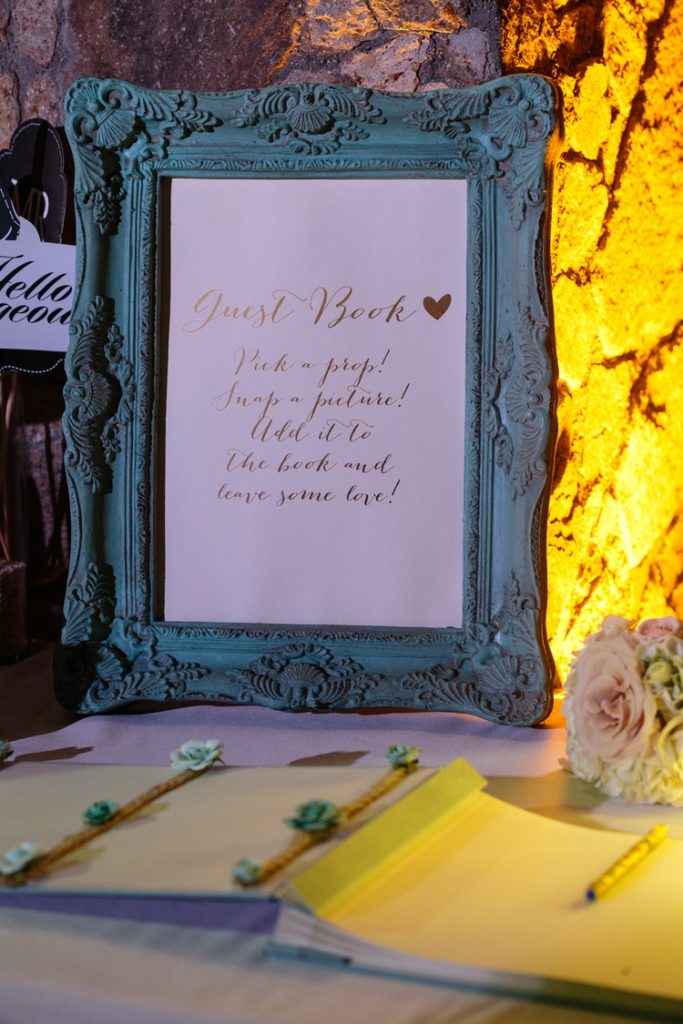 Guest Book ♥
Pick a prop!
Snap a picture!
Add it to
the book and
leave some love!
Hello